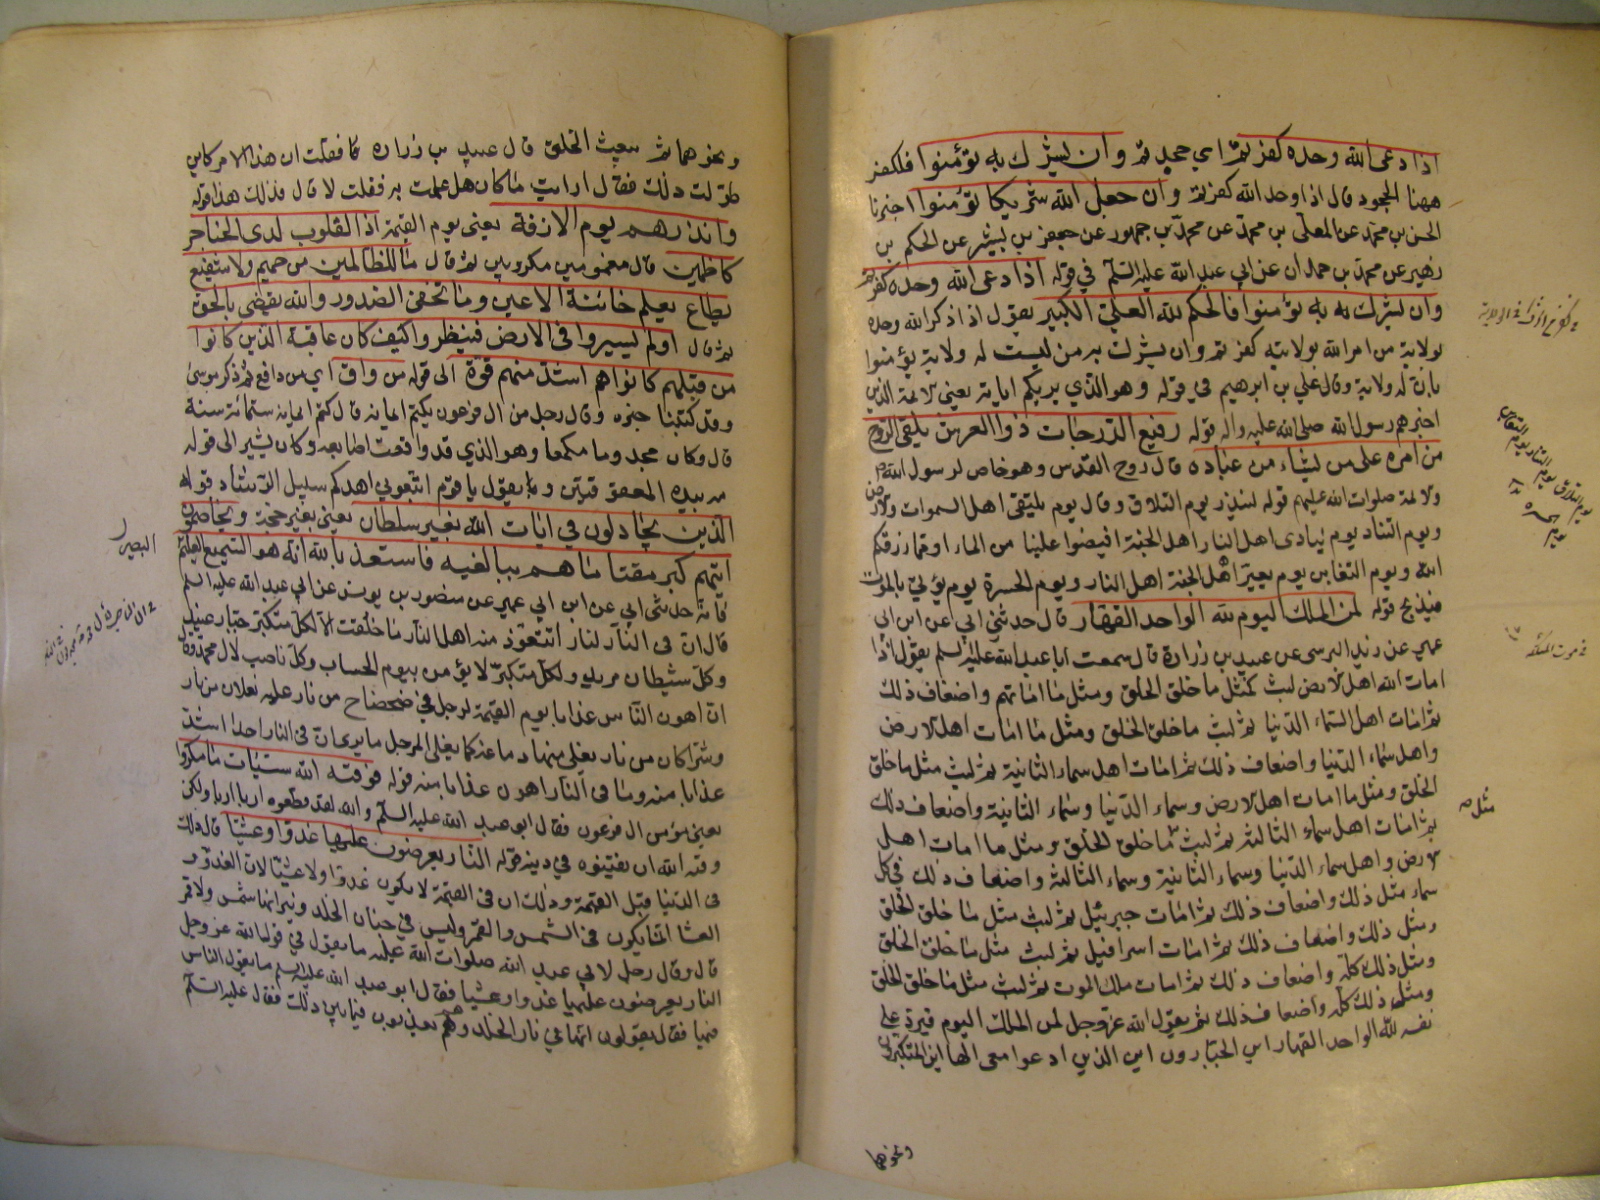 اذا دعى الله وحده كفرتم اي جحدتم وان يشرك به تؤمنوا فالكفر
ههنا الجحود قال اذا وحد الله كفرتم وان جعل لله شريكا تؤمنوا اخبرنا
الحسن بن محمد عن المعلى بن محمد عن محمد بن جمهور عن جعفر بن بشير عن الحكم بن
زهير عن محمد بن حمدان عن ابي عبد الله عليه السلم في قوله اذا دعى الله وحده كفرتم
وان يشرك به به تؤمنوا فالحكم لله العلي الكبير يقول اذا ذكر الله وحده
بولاية من امر الله بولايته كفرتم وان يشرك به من ليست له ولاية تؤمنوا
بان له ولاية وقال علي بن ابرهيم في قوله وهو الذي يريكم اياته يعني الائمة الذين
اخبرهم رسول الله صلى الله عليه واله قوله رفيع الدرجات ذوا العرش يلقى الروح
من امره على من يشاء من عباده قال روح القدس وهو خاص لرسول الله ص
والائمة صلوات الله عليهم قوله لينذر يوم التلاق وقال يوم يلتقى اهل السموات والارض
ويوم التناد يوم ينادى اهل النار اهل الجنة افيضوا علينا من الماء او مما رزقكم
الله ويوم التغابن يوم يعير اهل الجنة اهل النار ويوم الحسرة يوم يؤتى بالموت
فيذبح قوله لمن الملك اليوم لله الواحد القهار قال حدثني ابي عن ابن ابي
عمير عن زيد النرسى عن عبيد بن زرارة قال سمعت ابا عبد الله عليه السلم يقول اذا
امات الله اهل الارض لبث كمثل ما خلق الخلق ومثل ما اماتهم واضعاف ذلك
ثم امات اهل السماء الدنيا ثم لبث ما خلق الخلق ومثل ما امات اهل الارض
واهل سماء الدنيا واضعاف ذلك ثم امات اهل سماء الثانية ثم لبث مثل ما خلق
الخلق ومثل ما امات اهل الارض وسماء الدنيا وسماء الثانية واضعاف ذلك
ثم امات اهل سماء الثالثة ثم لبث ما خلق الخلق ومثل ما امات اهل
الارض واهل سماء الدنيا وسماء الثانية وسماء الثالثة واضعاف ذلك في كل
سماء مثل ذلك واضعاف ذلك ثم امات جبرئيل ثم لبث مثل ما خلق الخلق
ومثل ذلك واضعاف ذلك ثم امات اسرافيل ثم لبث مثل ما خلق الخلق
ومثل ذلك كله واضعاف ذلك ثم امات ملك الموت ثم لبث مثل ما خلق الخلق
ومثل ذلك كله واضعاف ذلك ثم يقول الله عز وجل لمن الملك اليوم فيرد على
نفسه لله الواحد القهار اين الجبارون اين الذين ادعوا معى الها اين المتكبرون
ونحوهما
يوم التلاق يوم التناد يوم التغابن
يوم الحسرة
في موت الملائكة
مثل
ونحوهما ثم يبعث الخلق قال عبيد بن زراره فقلت ان هذا الامر كاين
طولت ذلك فقال ارايت ما كان هل علمت به فقلت لا قال فذلك هذا قوله
وانذرهم يوم الازفة يعني يوم القيمة اذ القلوب لدى الحناجر
كاظمين قال مغمومين مكروبين ثم قال ما للظالمين من حميم ولا شفيع
يطاع يعلم خائنة الاعين وما تخفى الصدور والله يقضى بالحق
ثم قال اولم يسيروا فى الارض فينظروا كيف كان عاقبة الذين كانوا
من قبلهم كانوا هم اشد منهم قوة الى قوله من واق اي من دافع ثم ذكر موسى
وقد كتبنا خبره وقال رجل من ال فرعون يكتم ايمانه قال كتم ايمانه ستمائة سنة
قال وكان مجذوما مكمعا وهو الذي قد وقعت اصابعه وكان يشير الى قومه
بيديه المعقوفتين و يقول يا قوم اتبعوني اهدكم سبيل الرشاد قوله
الذين يجادلون في ايات الله بغير سلطان يعني بغير حجة ويخاصمون
ايتهم كبر مقتا ما هم ببالغيه فاستعذ بالله انه هو السميع العليم
فانه حدثني ابي عن ابن ابي عمير عن منصور بن يونس عن ابي عبد الله عليه السلم
قال ان فى النار لنار اتتعوذ منه اهل النار ما خلقت الا لكل متكبر جبار عنيد
وكل شيطان مريد ولكل متكبر لا يؤمن بيوم الحساب وكل ناصب لال محمد وقال
ان اهون الناس عذابا يوم القيمة لرجل في ضحضاح من نار عليه نعلان من نار
وشراكان من نار يغلى منها دماغه كما يغلى المرجل ما يرى ان فى النار احدا اشد
عذابا منه وما فى النار اهون عذابا منه قوله فوقيه الله سيئات ما مكروا
يعنى مؤمن ال فرعون فقال ابو عبد الله عليه السلم والله لقد قطعوه اربا اربا ولكن
وقه الله ان يفتنوه في دينه قوله النار يعرضون عليها غدوا وعشيا قال ذلك
فى الدنيا قبل القيمة وذلك ان فى القيمة لا يكون غدوا ولا عشيا لان الغدو و
العشا انما يكون فى الشمس والقمر وليس في جنان الخلد ونيرانها شمس ولا قمر
قال وقال رجل لابي عبد الله صلوات الله عليه ما يقول في قول الله عز وجل
النار يعرضون عليها غدوا وعشيا فقال ابو عبد الله عليه السلم ما يقول الناس
فيها فقال يقولون انها في نار الخلد وهم يعذبون فيما بين ذلك فقال عليه السلم
البصير